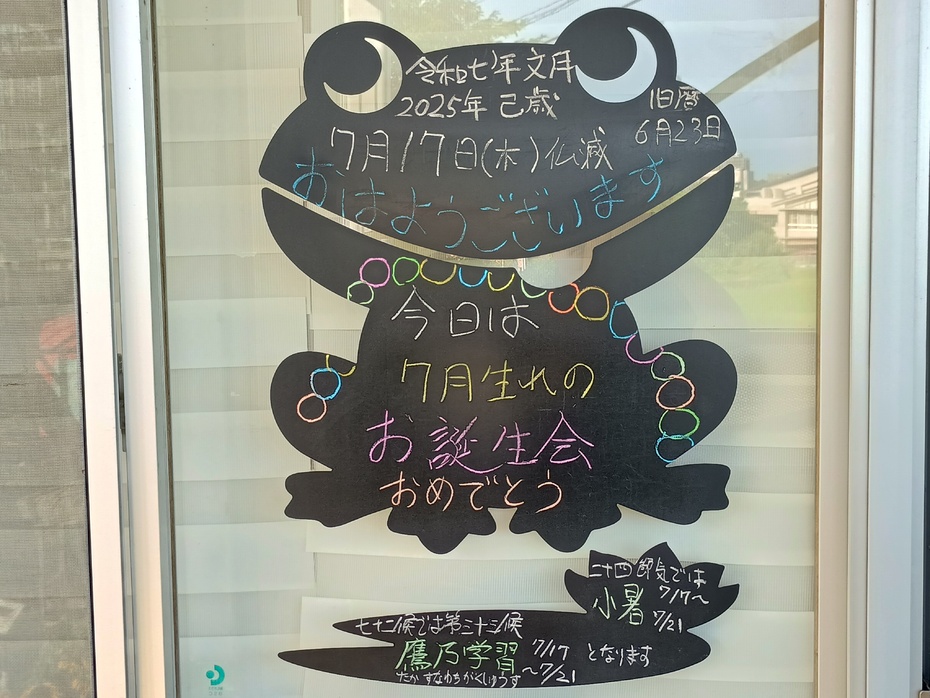 令和七年文月
2025年 己歳
旧暦
6月23日
7月17日(木)仏滅
おはようございます
今日は
7月生れの
お誕生会
おめでとう
二十四節気では
小暑 7/17～
7/21
七十二候では第三十三候
鷹乃学習 7/17
～7/21 となります
たか すなわちがくしゅうす